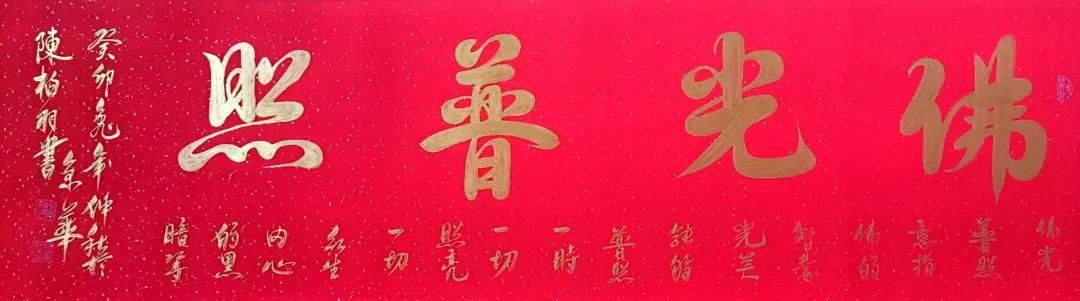 佛光普照
佛光
普照
意指
佛的
智慧
光芒
能够
普照
一時
一切
照亮
一切
众生
内心
的黑
暗等
癸卯兔年仲秋於
京華
陳柏羽書